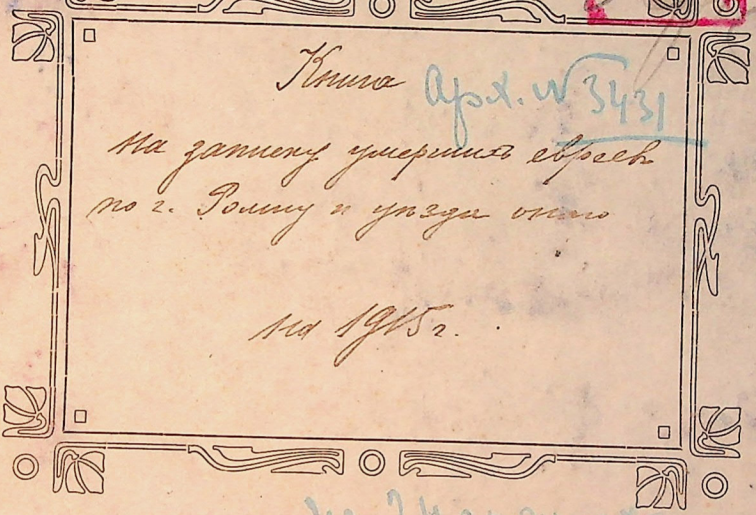 Книга
Арх. № 3431
на записку умерших евреев
по г. Ромну и уезда оного
на 1915 г.